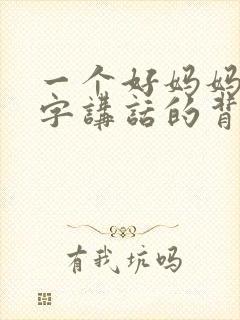 一个好妈妈
字講話的背
有我坑吗